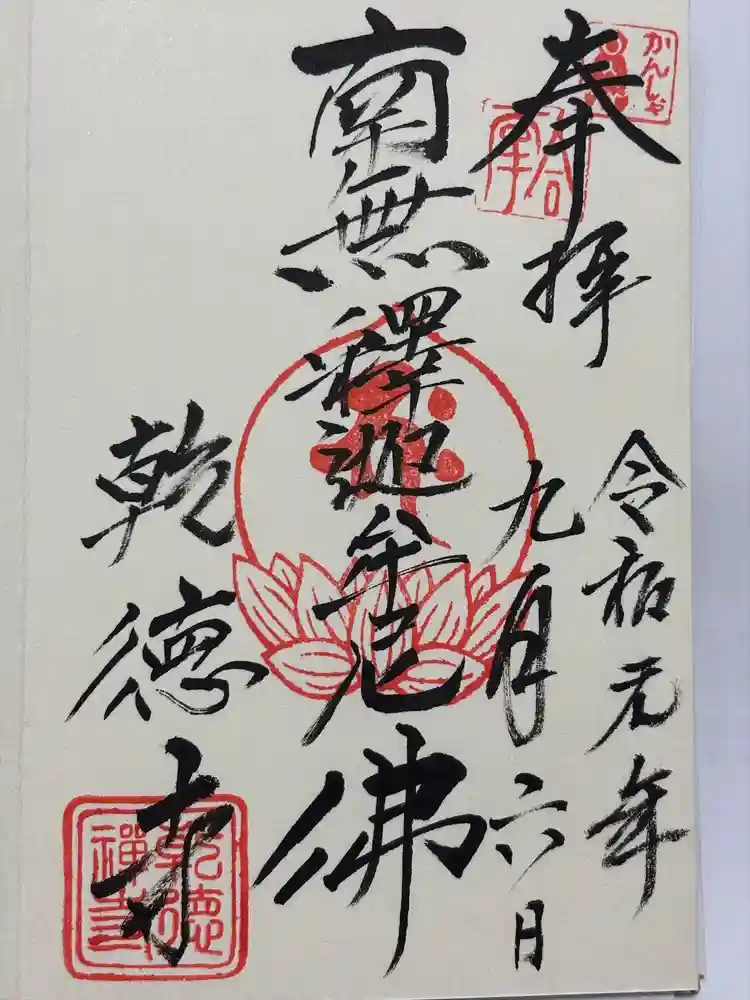 かんしゃ
奉拝
令和元年
九月六日
南無釋迦牟尼佛
乾德寺
乾徳
禅寺